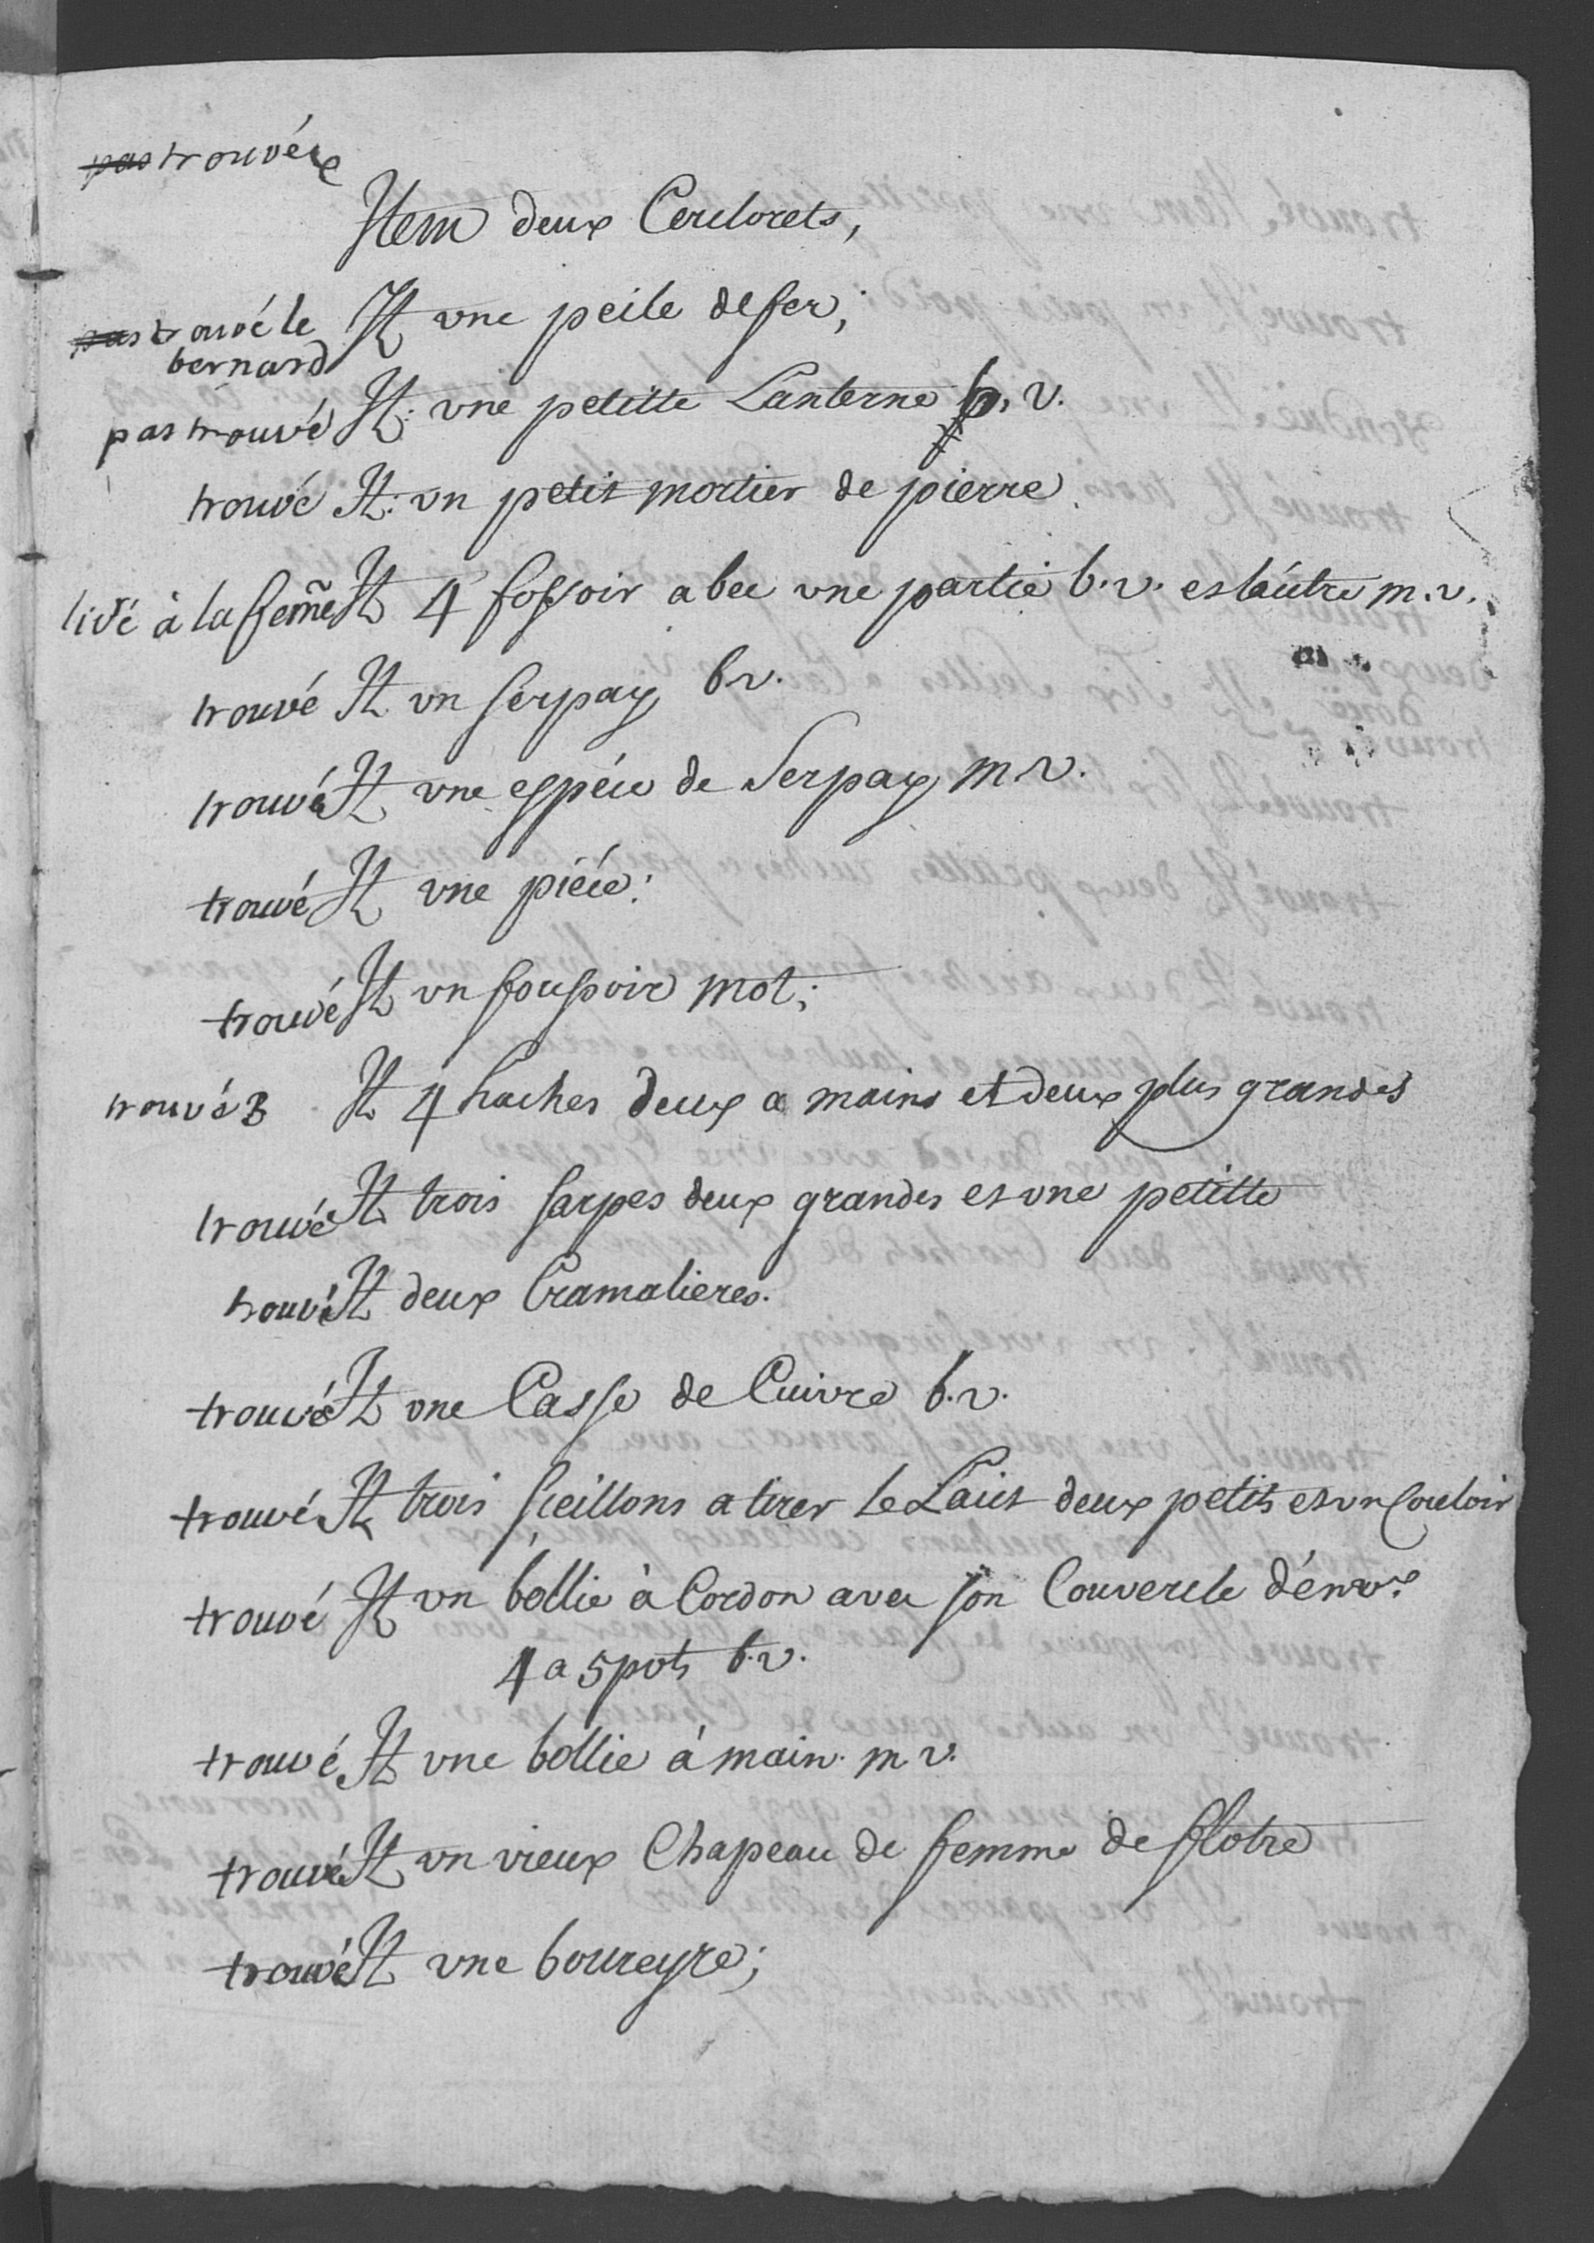 pas trouvé
Item deux Cerclorets,
pas trouvé le It une peile de fer;
bernard
pas trouvé It: une petitte Lanterne b. v.
trouvé It: un petit mortier de pierre
livré à la femme It 4 fossoir a bec une partie b. v. et l'autre m. v.
trouvé It un serpay b v.
trouvé It une espéce de Serpay m v.
trouvé It une piéce:
trouvé It un foussoir mot;
trouvé 3 It 4 haches deux a mains et deux plus grandes
trouvé It trois sarpes deux grandes et une petitte
trouvé It deux Cramalieres.
trouvé It une Casse de Cuivre b. v.
trouvé It trois seillons a tirer le Laict deux petits et un Couloir
trouvé It un bollie à Cordon avec son Couvercle d'env.
4 a 5 pots b. v.
trouvé It une bollie à main m v.
trouvé It un vieux Chapeau de femme de flotre
trouvé It une boureyre;